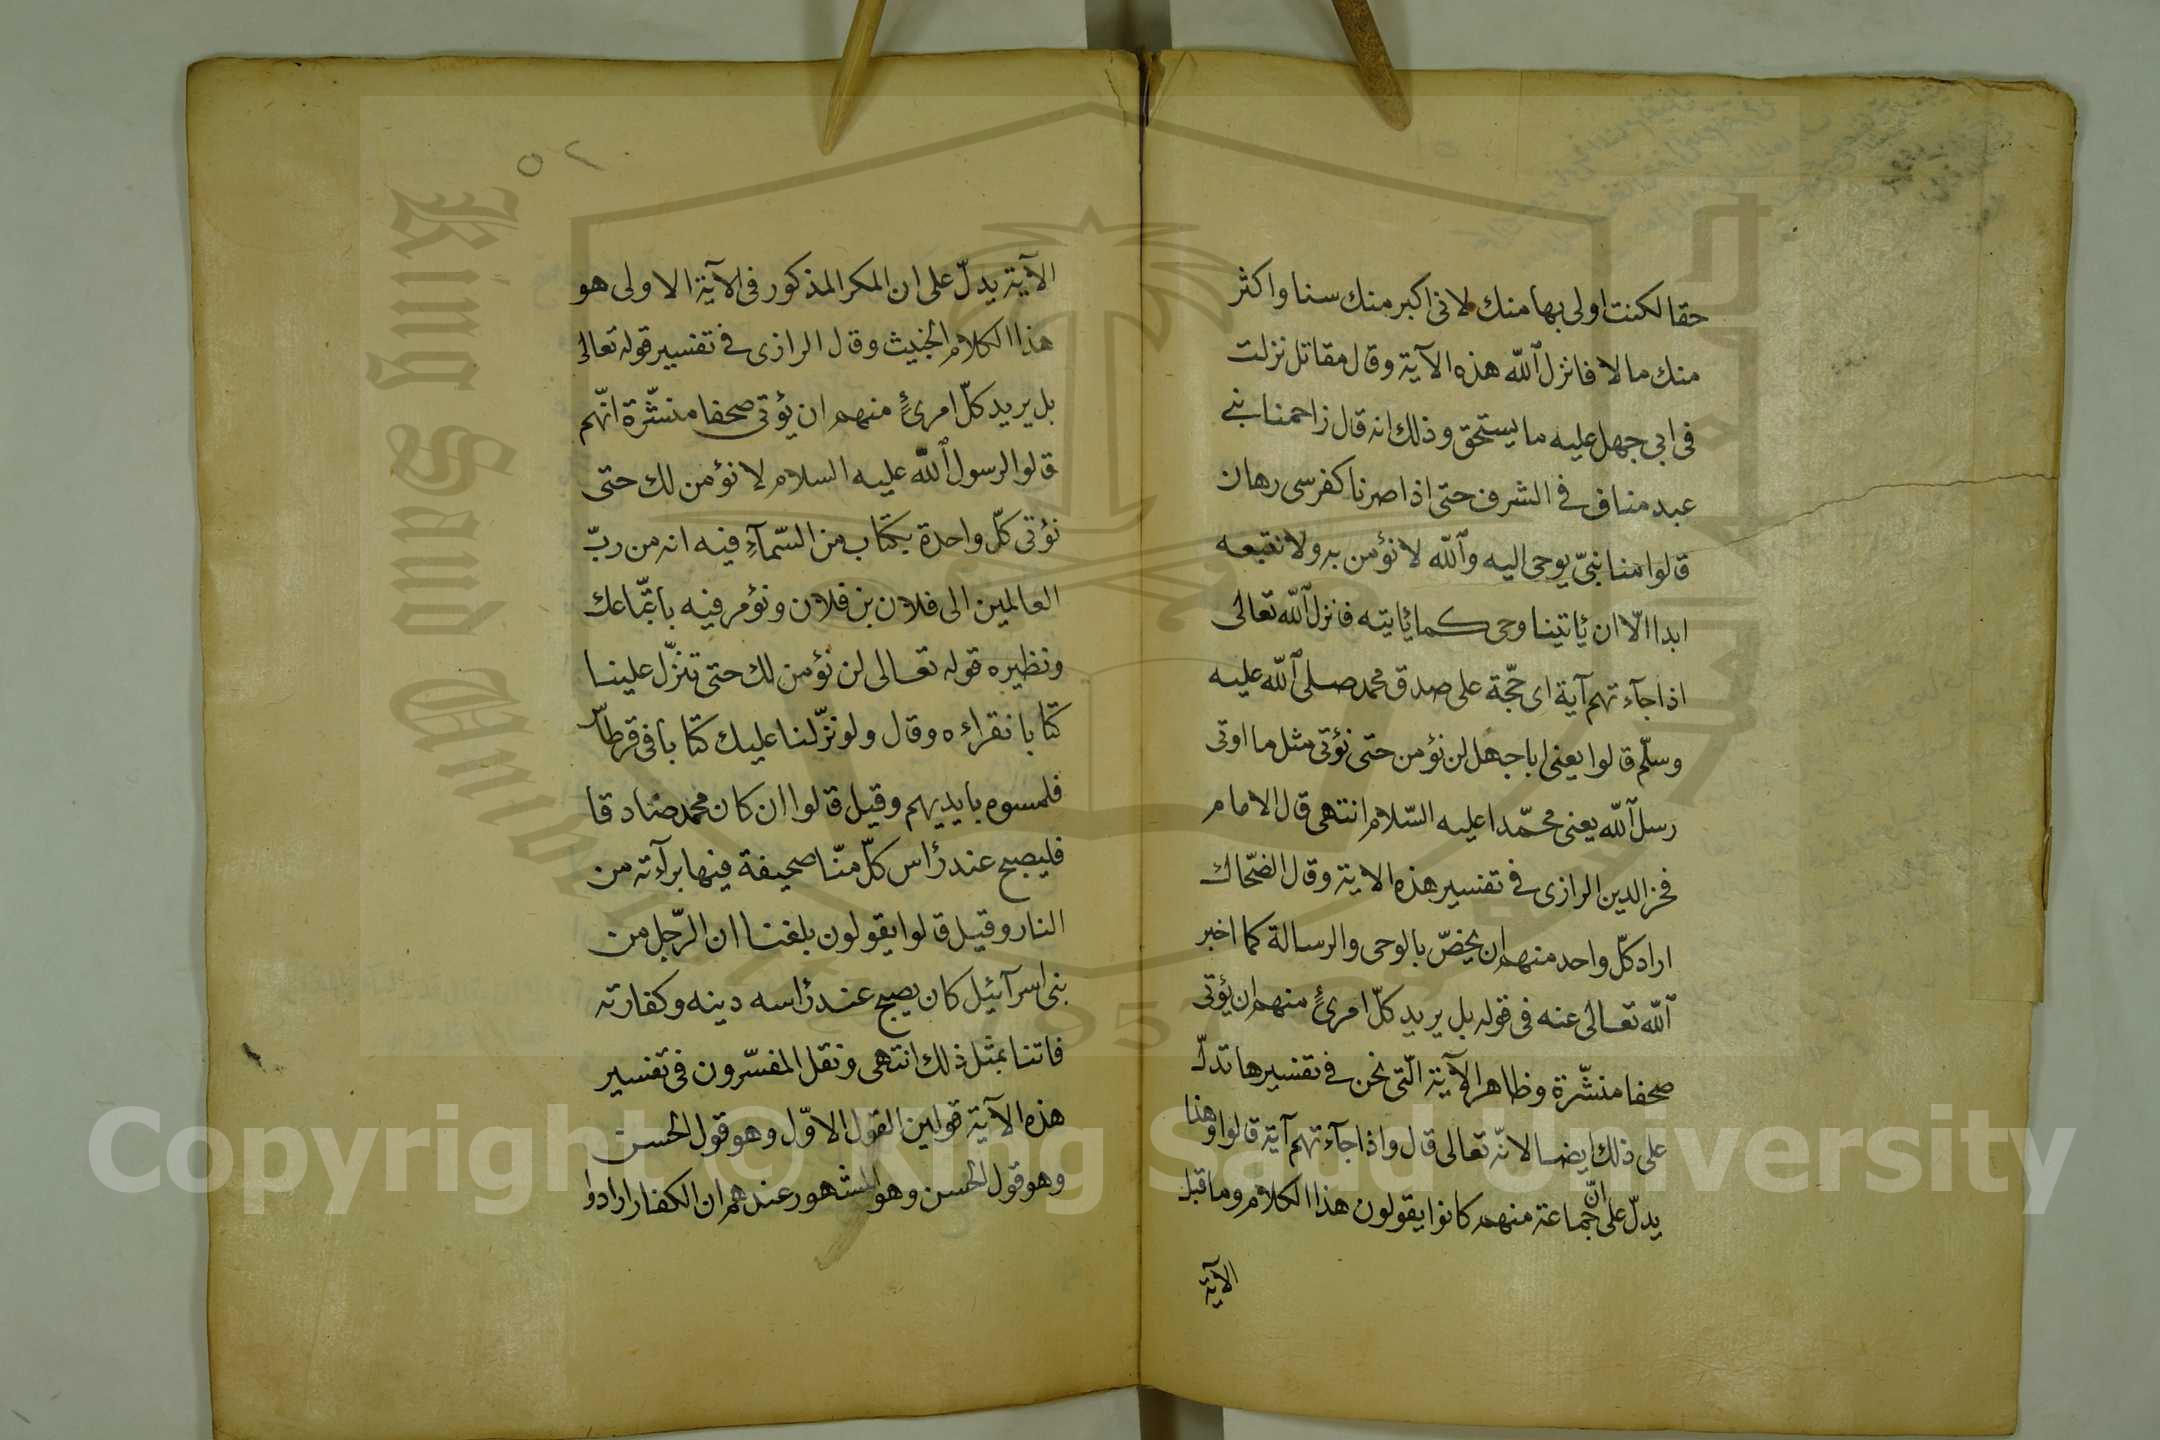 حقا لكنت اولى بها منك لانى اكبر منك سنا واكثر
منك مالا فانزل الله هذه الآية وقال مقاتل نزلت
فى ابى جهل عليه ما يستحق وذلك انه قال زاحمنا بنى
عبد مناف فى الشرف حتى اذا صرنا كفرسى رهان
قالوا منا نبىّ يوحى اليه والله لا نؤمن به ولا نتبعه
ابدا الّا ان يأتينا وحى كما يأتيه فانزل الله تعالى
اذا جآءتهم آية اى حجّة على صدق محمد صلى الله عليه
وسلّم قالوا يعنى ابا جهل لن نؤمن حتى نؤتى مثل ما اوتى
رسل الله يعنى محمّدا عليه السّلام انتهى قال الامام
فخر الدين الرازى فى تفسير هذه الاية وقال الضحّاك
اراد كلّ واحد منهم ان يخصّ بالوحى والرسالة كما اخبر
الله تعالى عنه فى قوله بل يريد كلّ امرئ منهم ان يؤتى
صحفا منشّرة وظاهر الآية الّتى نحن فى تفسيرها تدلّ
على ذلك ايضا لانّه تعالى قال واذا جآءتهم آية قالوا وهذا
يدلّ على انّ جماعة منهم كانوا يقولون هذا الكلام وما قبل
الآية
٥٢
الآية يدلّ على ان المكر المذكور فى الآية الاولى هو
هذا الكلام الخبيث وقال الرازى فى تفسير قوله تعالى
بل يريد كلّ امرئ منهم ان يؤتى صحفا منشّرة انّهم
قالوا لرسول الله عليه السلام لا نؤمن لك حتى
نؤتى كلّ واحدة بكتاب من السّمآء فيه انه من ربّ
العالمين الى فلان بن فلان ونؤمر فيه باتّباعك
ونظيره قوله تعالى لن نؤمن لك حتى تنزّل علينا
كتابا نقراءه وقال ولو نزّلنا عليك كتابا فى قرطاس
فلمسوه بايديهم وقيل قالوا ان كان محمد صادقا
فليصبح عند رأس كلّ منّا صحيفة فيها برآءته من
النار وقيل قالوا يقولون بلغنا ان الرّجل من
بنى اسرآئيل كان يصبح عند رأسه دينه وكفارته
فاتنا بمثل ذلك انتهى ونقل المفسّرون فى تفسير
هذه الآية قولين القول الاوّل وهو قول الحسن
وهو قول الحسن وهو المشهور عندهم ان الكفار ارادوا
King Saud University
1957
Copyright © King Saud University